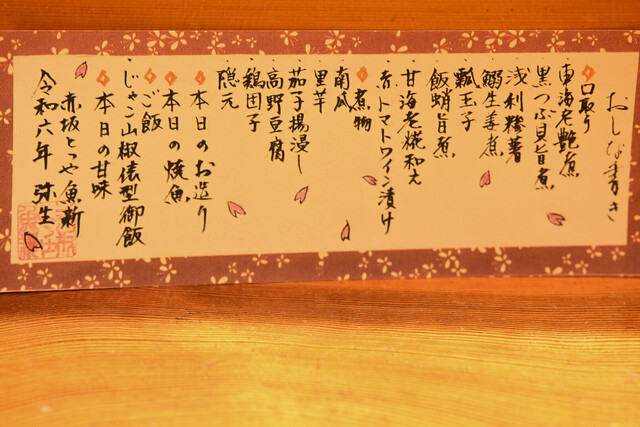 おしながき
口取り
車海老艶煮
黒つぶ貝旨煮
浅利糝薯
鰯生姜煮
瓢玉子
飯蛸旨煮
甘海老糀和え
赤トマトワイン漬け
煮物
南瓜
里芋
茄子揚浸し
高野豆腐
鶏団子
隠元
本日のお造り
本日の焼魚
ご飯
じゃこ山椒俵型御飯
本日の甘味
赤坂とゝや魚新
令和六年 弥生